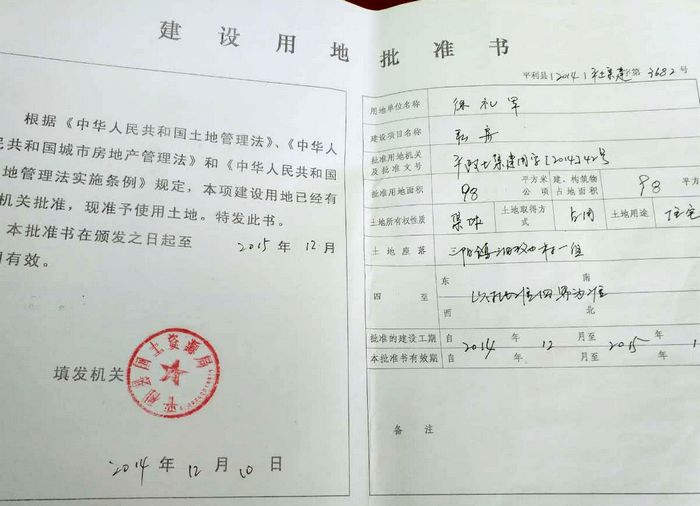 建设用地批准书
根据《中华人民共和国土地管理法》、《中华人
民共和国城市房地产管理法》和《中华人民共和国
地管理法实施条例》规定，本项建设用地已经有
机关批准，现准予使用土地。特发此书。
本批准书在颁发之日起至 2015 年 12 月
有效。
平利县国土资源局
填发机关
2014 年 12 月 10 日
平利县(2014)平土集建字第3682号
用地单位名称 徐礼军
建设项目名称 私房
批准用地机关及批准文号 平政土集建国字[2014]42号
批准用地面积 98 平方米 公顷 建、构筑物占地面积 98 平方
土地所有权性质 集体 土地取得方式 占用 土地用途 住宅
土地座落 三阳镇 村一组
四至 东 南
西 北
以 为准
批准的建设工期 自 2014 年 12 月至 2015 年 1
本批准书有效期 自 年 月至 年
备注